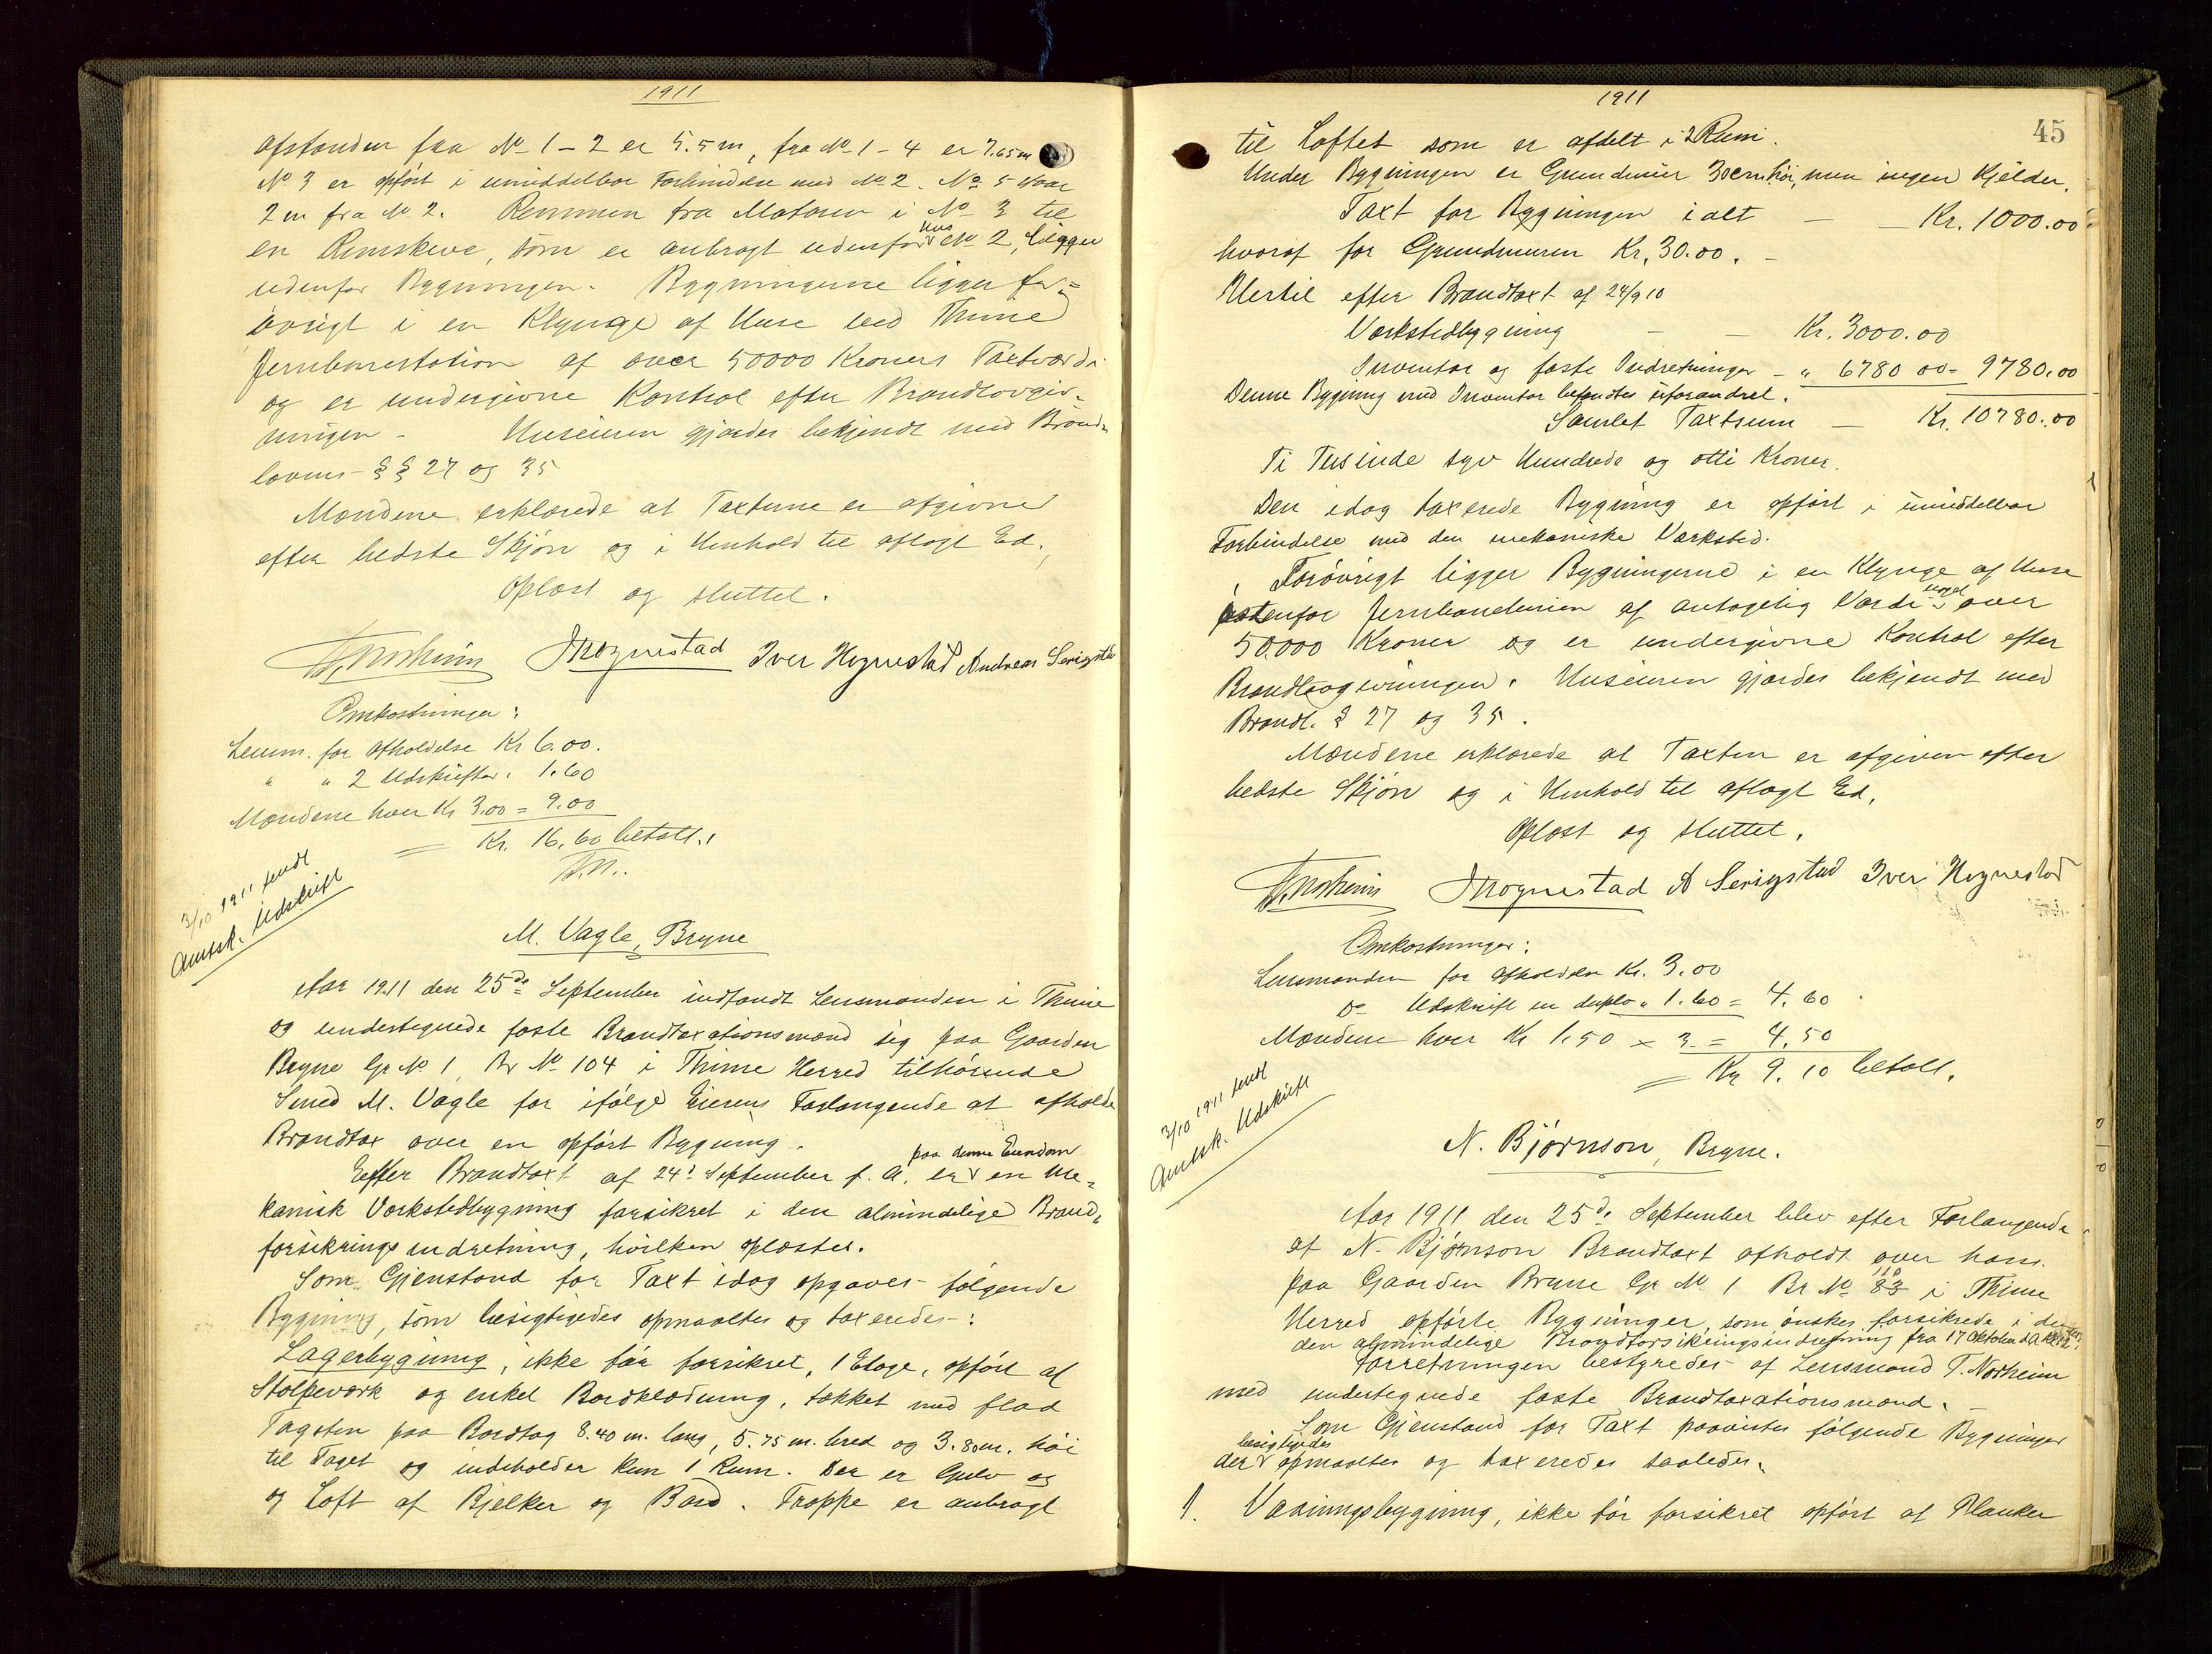 1911
Afstanden fra No 1 - 2 er 5.5 m, fra No 1 - 4 er 7.65 m
No 3 er opført i umiddelbar Forbindelse med No 2. No 5 staar
2 m fra No 2. Remmen fra Motoren i No 3 til
en Remskive, som er anbragt udenfor Hus No 2, ligger
udenfor Bygningen. Bygningerne ligger for=
øvrigt i en Klynge af Huse ved Thime
Jernbanestation af over 50000 Kroners Taxtværdi
og er undergivne Kontrol efter Brandlovgiv-
ningen - Huseieren gjordes bekjendt med Brand-
lovens §§ 27 og 35
Mændene erklærede at Taxterne er afgivne
efter bedste Skjøn og i Henhold til aflagt Ed.
Oplæst og sluttet.
T. Norheim JHognestad Iver Hognestad Andreas Serigstad
Omkostninger:
Lensm. for Afholdelse Kr 6.00.
" " 2 Udskrifter. 1.60
Mændene hver Kr 3.00 = 9.00
Kr. 16.60 betalt.
T.N.
3/10 1911 sendt
Amtsk. Udskrift
M. Vagle, Bryne
Aar 1911 den 25de September indfandt Lensmanden i Thime
og undertegnede faste Brandtaxationsmænd sig paa Gaarden
Bryne Gr No 1, Br No 104 i Thime Herred tilhørende
Smed M. Vagle for ifølge Eierens Forlangende at afholde
Brandtax over en opført Bygning.
Efter Brandtaxt af 24d September f. A. er paa denne Eiendom en Me=
kanisk Værkstedbygning forsikret i den almindelige Brand-
forsikringsindretning, hvilken oplæstes.
Som Gjenstand for Taxt idag opgaves følgende
Bygning, som besigtigedes opmaaltes og taxeredes:
Lagerbygning, ikke før forsikret, 1 Etage, opført af
Stolpeværk og enkel Bordklædning, tækket med flad
Tagsten paa Bordtag 8.40 m. lang, 5.75 m. bred og 3.80 m. høi
til Taget og indeholder kun 1 Rum. Der er Gulv og
og Loft af Bjelker og Bord. Trappe er anbragt
1911
45
til Loftet som er afdelt i 2 Rum.
Under Bygningen er Grundmur 30 cm. høi, men ingen Kjelder.
Taxt for Bygningen ialt — — Kr. 1000.00
hvoraf for Grundmuren Kr. 30.00. -
Hertil efter Brandtaxt af 24/9 10
Værkstedbygning — — Kr. 3000.00
Inventar og faste Indretninger - " 6780 00 = 9780.00
Denne Bygning med Inventar befandtes uforandret.
Samlet Taxtsum — Kr. 10780.00
Ti Tusinde syv Hundrede og otti Kroner.
Den idag taxerede Bygning er opført i umiddelbar
Forbindelse med den mekaniske Værksted.
Forøvrigt ligger Bygningerne i en Klynge af Huse
østenfor Jernbanelinien af antagelig Værdi noget over
50.000 Kroner og er undergivne Kontrol efter
Brandlovgivningen. Huseieren gjordes bekjendt med
Brandl. § 27 og 35.
Mændene erklærede at Taxten er afgiven efter
bedste Skjøn og i Henhold til aflagt Ed.
Oplæst og sluttet.
T. Norheim JHognestad A Serigstad Iver Hognestad
Omkostninger:
Lensmanden for Afholdelse Kr. 3.00
do Udskrift in duplo " 1.60 = 4.60
Mændene hver Kr 1.50 x 3 = 4.50
Kr 9.10 betalt.
3/10 1911 sendt
Amtsk. Udskrift
N. Bjørnson, Bryne.
Aar 1911 den 25de September blev efter Forlangende
af N. Bjørnson Brandtaxt afholdt over hans
paa Gaarden Bryne Gr No 1 Br No 83 110 i Thime
Herred opførte Bygninger, som ønskes forsikrede i den
den almindelige Brandforsikringsindretning fra 17 Oktober d.A.
Forretningen bestyredes af Lensmand T. Norheim
med undertegnede faste Brandtaxationsmænd.
Som Gjenstand for Taxt paavistes følgende Bygninger
der besigtigedes opmaaltes og taxeredes saaledes.
1. Vaaningsbygning, ikke før forsikret opført af Planker